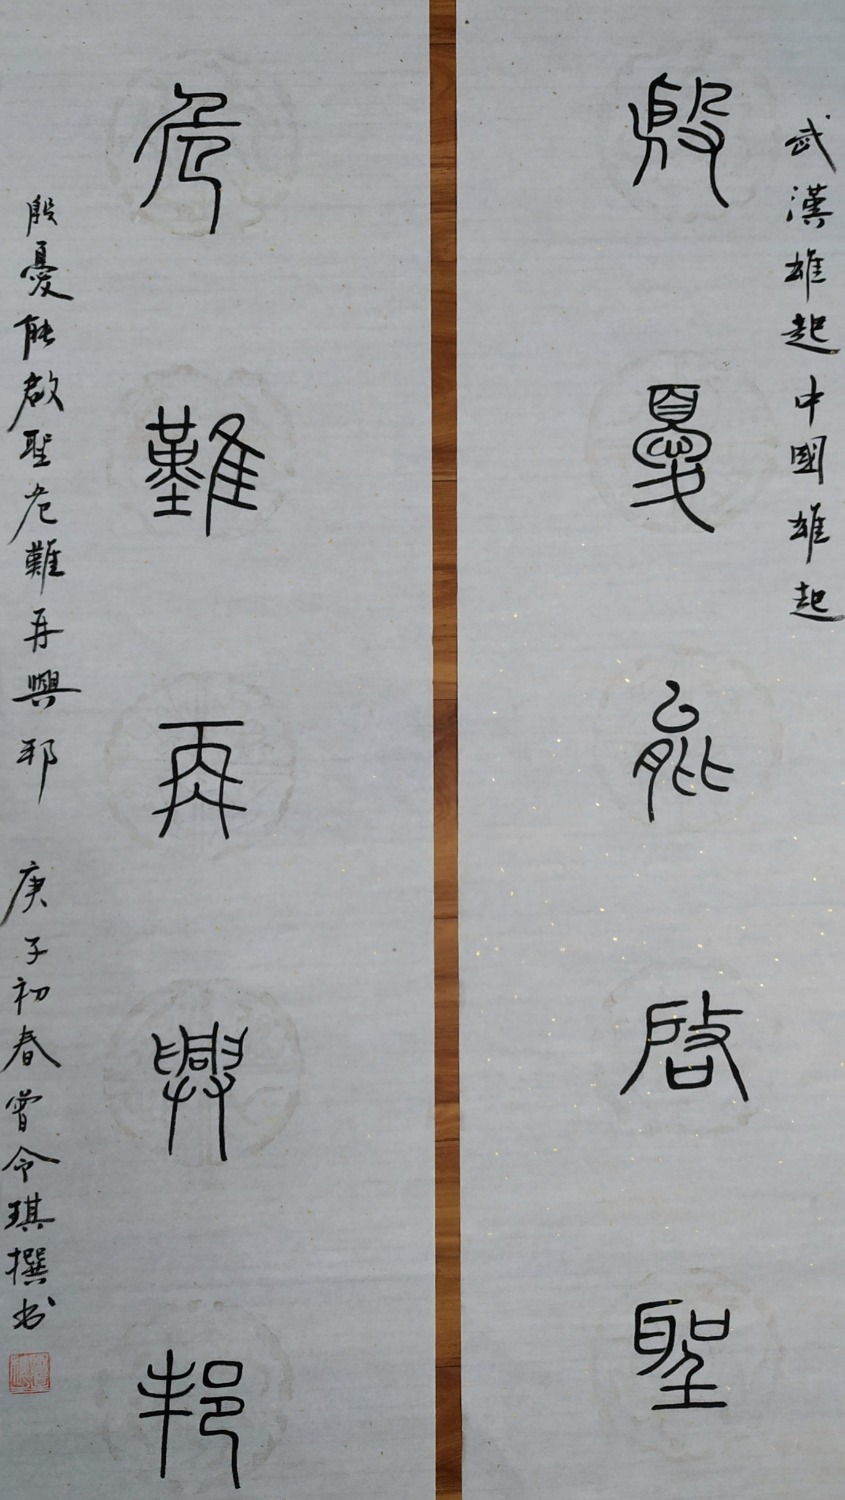 武漢雄起中國雄起
殷憂能啓聖
危難再興邦
殷憂能啟聖危難再興邦
庚子初春曾令琪撰书